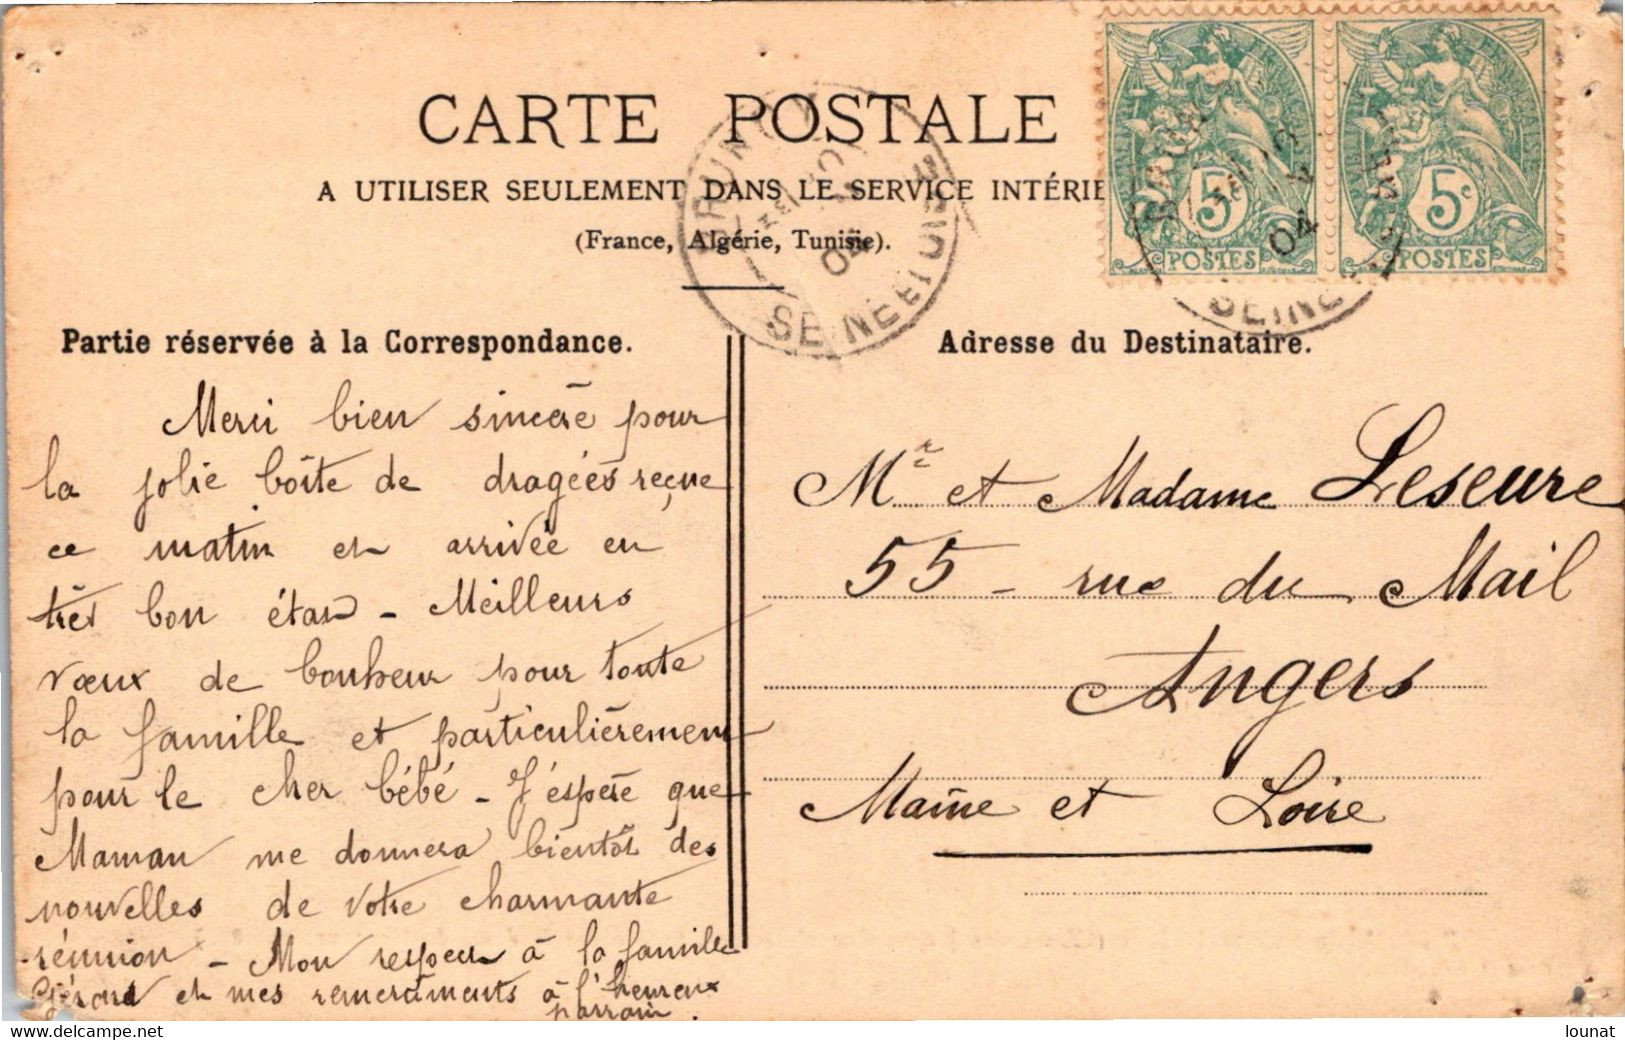 CARTE POSTALE
A UTILISER SEULEMENT DANS LE SERVICE INTÉRIE
(France, Algérie, Tunisie).
5c
POSTES
5c
POSTES
BRUNOY
04
SEINE ET OISE
04
SEINE
Partie réservée à la Correspondance.
Merci bien sincère pour
la jolie boîte de dragées reçue
ce matin et arrivée en
très bon état - Meilleurs
vœux de bonheur pour toute
la famille et particulièrement
pour le cher bébé - J'espère que
Maman me donnera bientôt des
nouvelles de votre charmante
réunion - Mon respect à la famille
Gérard et mes remerciments à l'heureux
parrain.
Adresse du Destinataire.
Mr et Madame Leseure
55 - rue du Mail
Angers
Maine et Loire
lounat